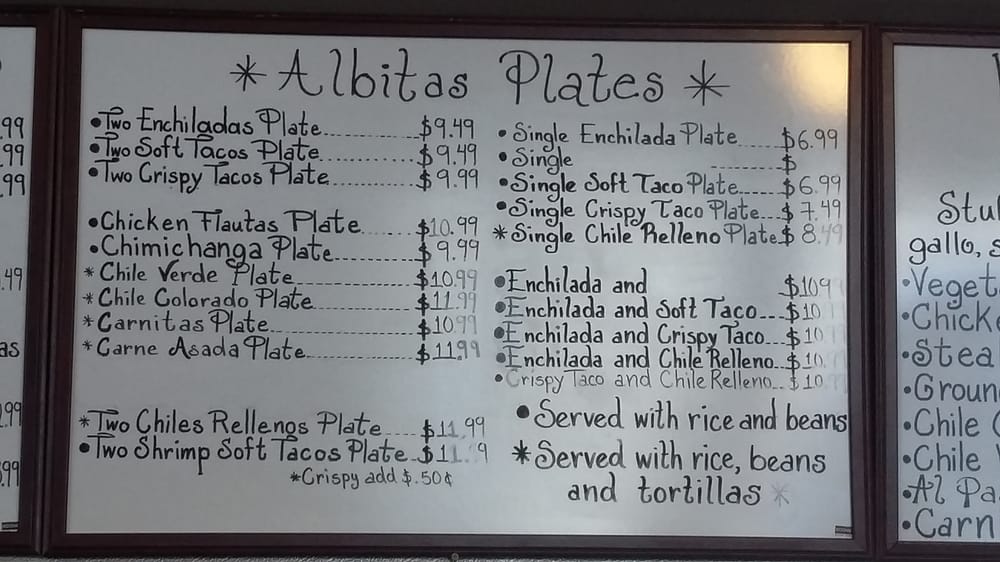 * Albitas Plates *
• Two Enchiladas Plate $9.49
• Two Soft Tacos Plate $9.49
• Two Crispy Tacos Plate $9.99
• Chicken Flautas Plate $10.99
• Chimichanga Plate $9.99
* Chile Verde Plate $10.99
* Chile Colorado Plate $11.99
* Carnitas Plate $10.99
* Carne Asada Plate $11.99
* Two Chiles Rellenos Plate $11.99
• Two Shrimp Soft Tacos Plate $11. 9
*Crispy add $.50¢
• Single Enchilada Plate $6.99
• Single $
• Single Soft Taco Plate $6.99
• Single Crispy Taco Plate $7.49
* Single Chile Relleno Plate $8.49
• Enchilada and $109
• Enchilada and Soft Taco $10
• Enchilada and Crispy Taco $10
• Enchilada and Chile Relleno $10.
• Crispy Taco and Chile Relleno $10
• Served with rice and beans
* Served with rice, beans
and tortillas *
.99
.99
.99
.49
as
.99
.99
Stu
gallo, s
• Veget
• Chick
• Stea
• Groun
• Chile
• Chile
• Al Pa
• Carn